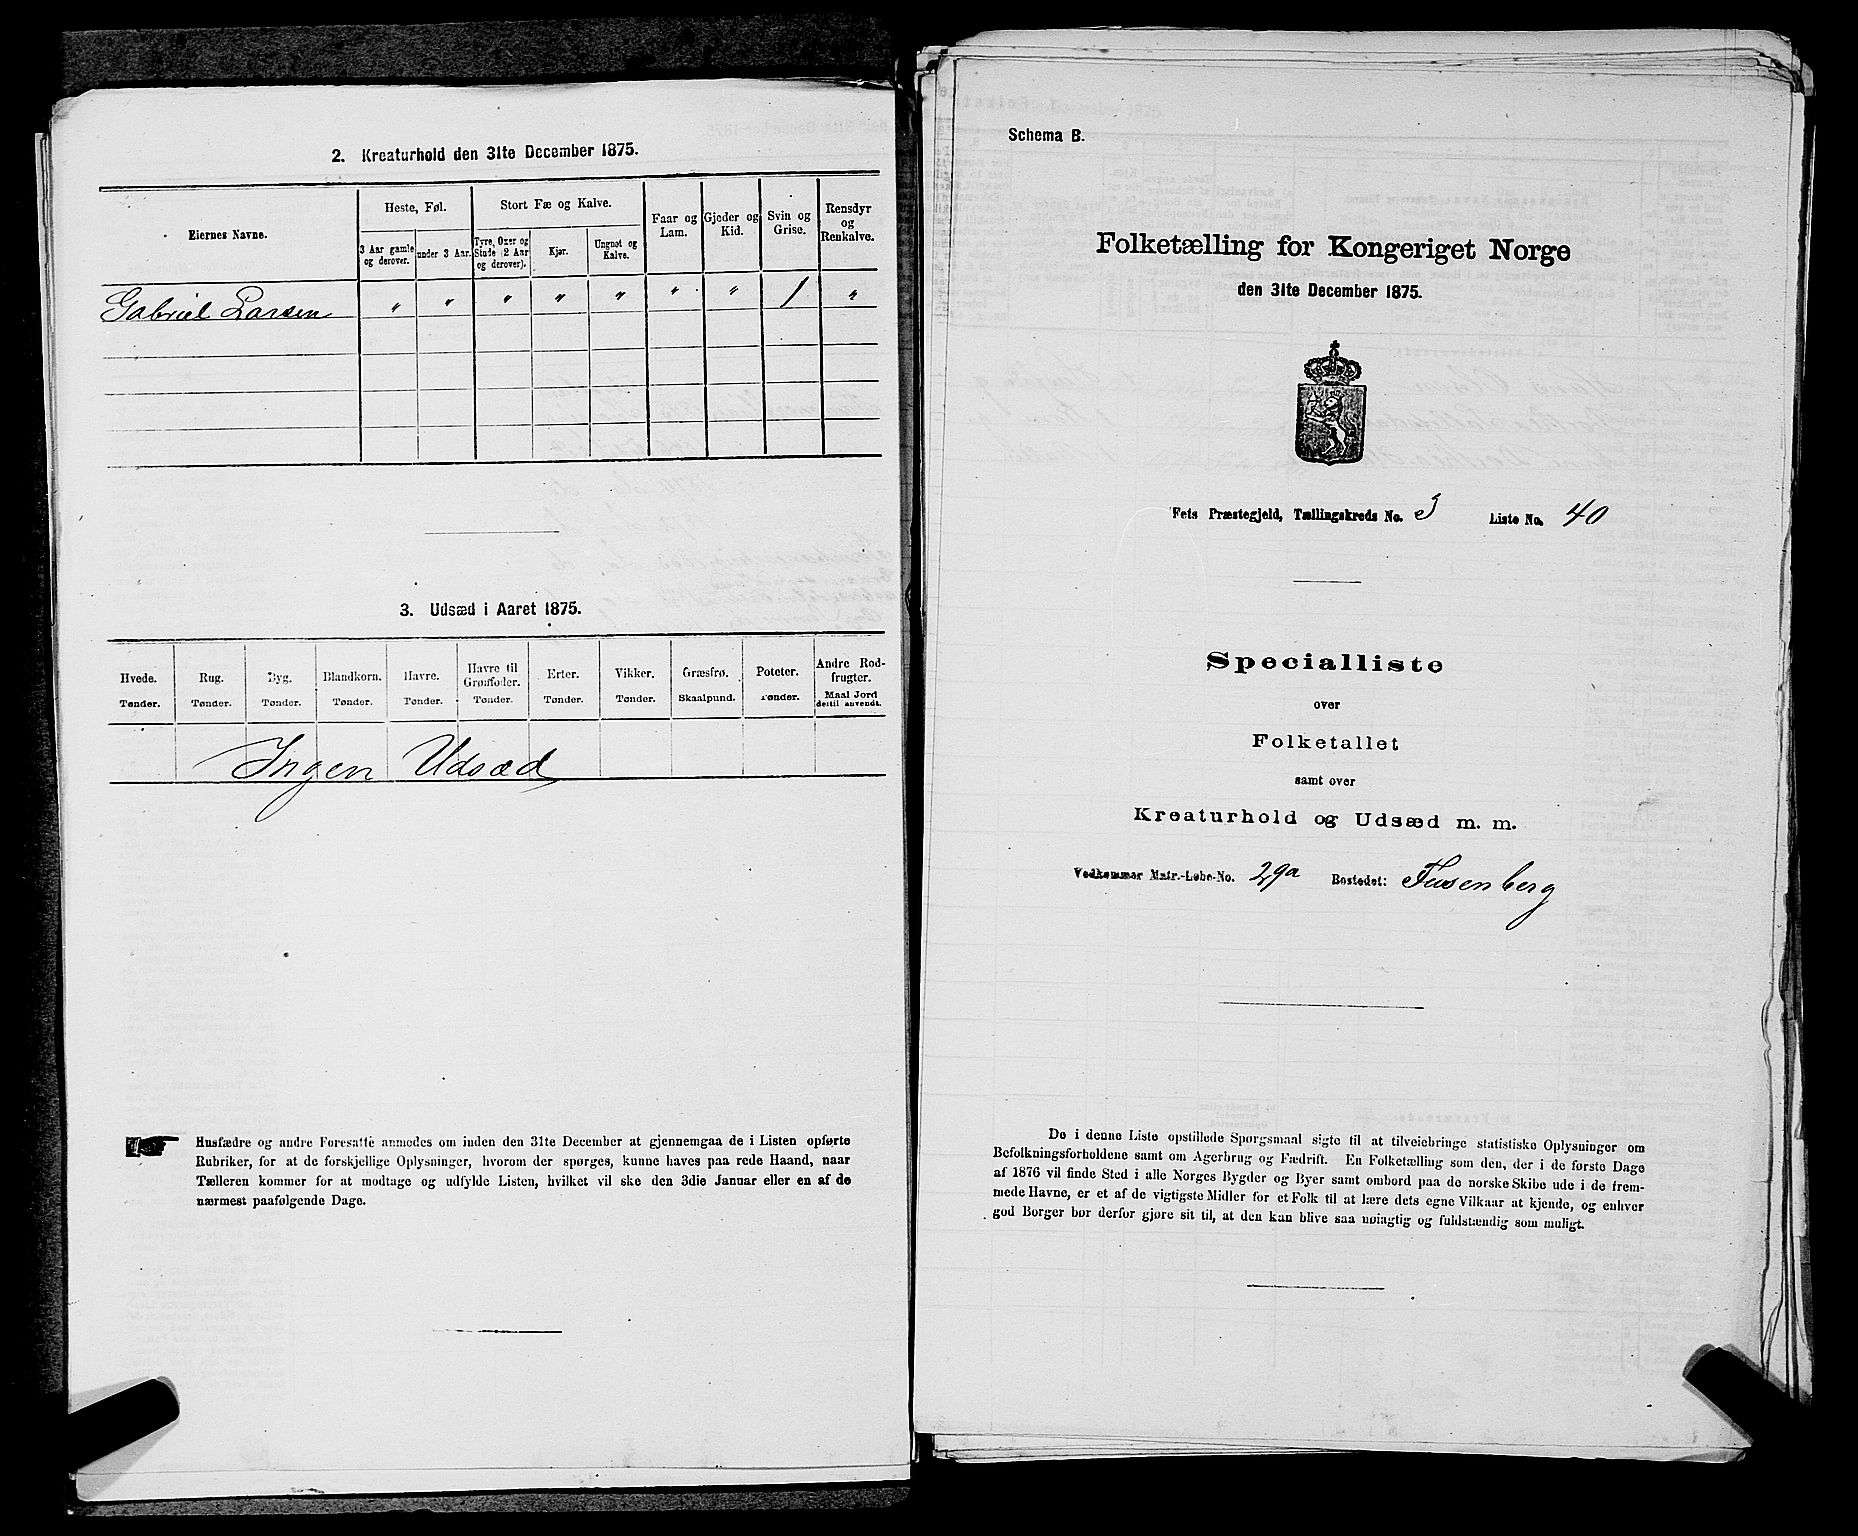 2. Kreaturhold den 31te December 1875.
Eiernes Navne.
Heste, Føl.
Stort Fæ og Kalve.
Faar og Lam.
Gjeder og Kid.
Svin og Grise.
Rensdyr og Renkalve.
3 Aar gamle og derover.
under 3 Aar.
Tyre, Oxer og Stude (2 Aar og derover).
Kjør.
Ungnøt og Kalve.
Gabriel Larsen " " " " " " " 1 "
3. Udsæd i Aaret 1875.
Hvede. Rug. Byg. Blandkorn. Havre. Havre til Grønfoder. Erter. Vikker. Græsfrø. Poteter. Andre Rodfrugter.
Tønder. Tønder. Tønder. Tønder. Tønder. Tønder. Tønder. Tønder. Skaalpund. Tønder. Maal Jord dertil anvendt.
Ingen Udsæd
Husfædre og andre Foresatte anmodes om inden den 31te December at gjennemgaa de i Listen opførte
Rubriker, for at de forskjellige Oplysninger, hvorom der spørges, kunne haves paa rede Haand, naar
Tælleren kommer for at modtage og udfylde Listen, hvilket vil ske den 3die Januar eller en af de
nærmest paafølgende Dage.
Schema B.
Folketælling for Kongeriget Norge
den 31te December 1875.
Fets Præstegjeld, Tællingskreds No. 3 Liste No. 40
Specialliste
over
Folketallet
samt over
Kreaturhold og Udsæd m. m.
Vedkommer Matr.-Løbe-No. 29a Bostedet: Fusenberg
De i denne Liste opstillede Spørgsmaal sigte til at tilveiebringe statistiske Oplysninger om
Befolkningsforholdene samt om Agerbrug og Fædrift. En Folketælling som den, der i de første Dage
af 1876 vil finde Sted i alle Norges Bygder og Byer samt ombord paa de norske Skibe ude i de frem-
mede Havne, er et af de vigtigste Midler for et Folk til at lære dets egne Vilkaar at kjende, og enhver
god Borger bør derfor gjøre sit til, at den kan blive saa nøiagtig og fuldstændig som muligt.